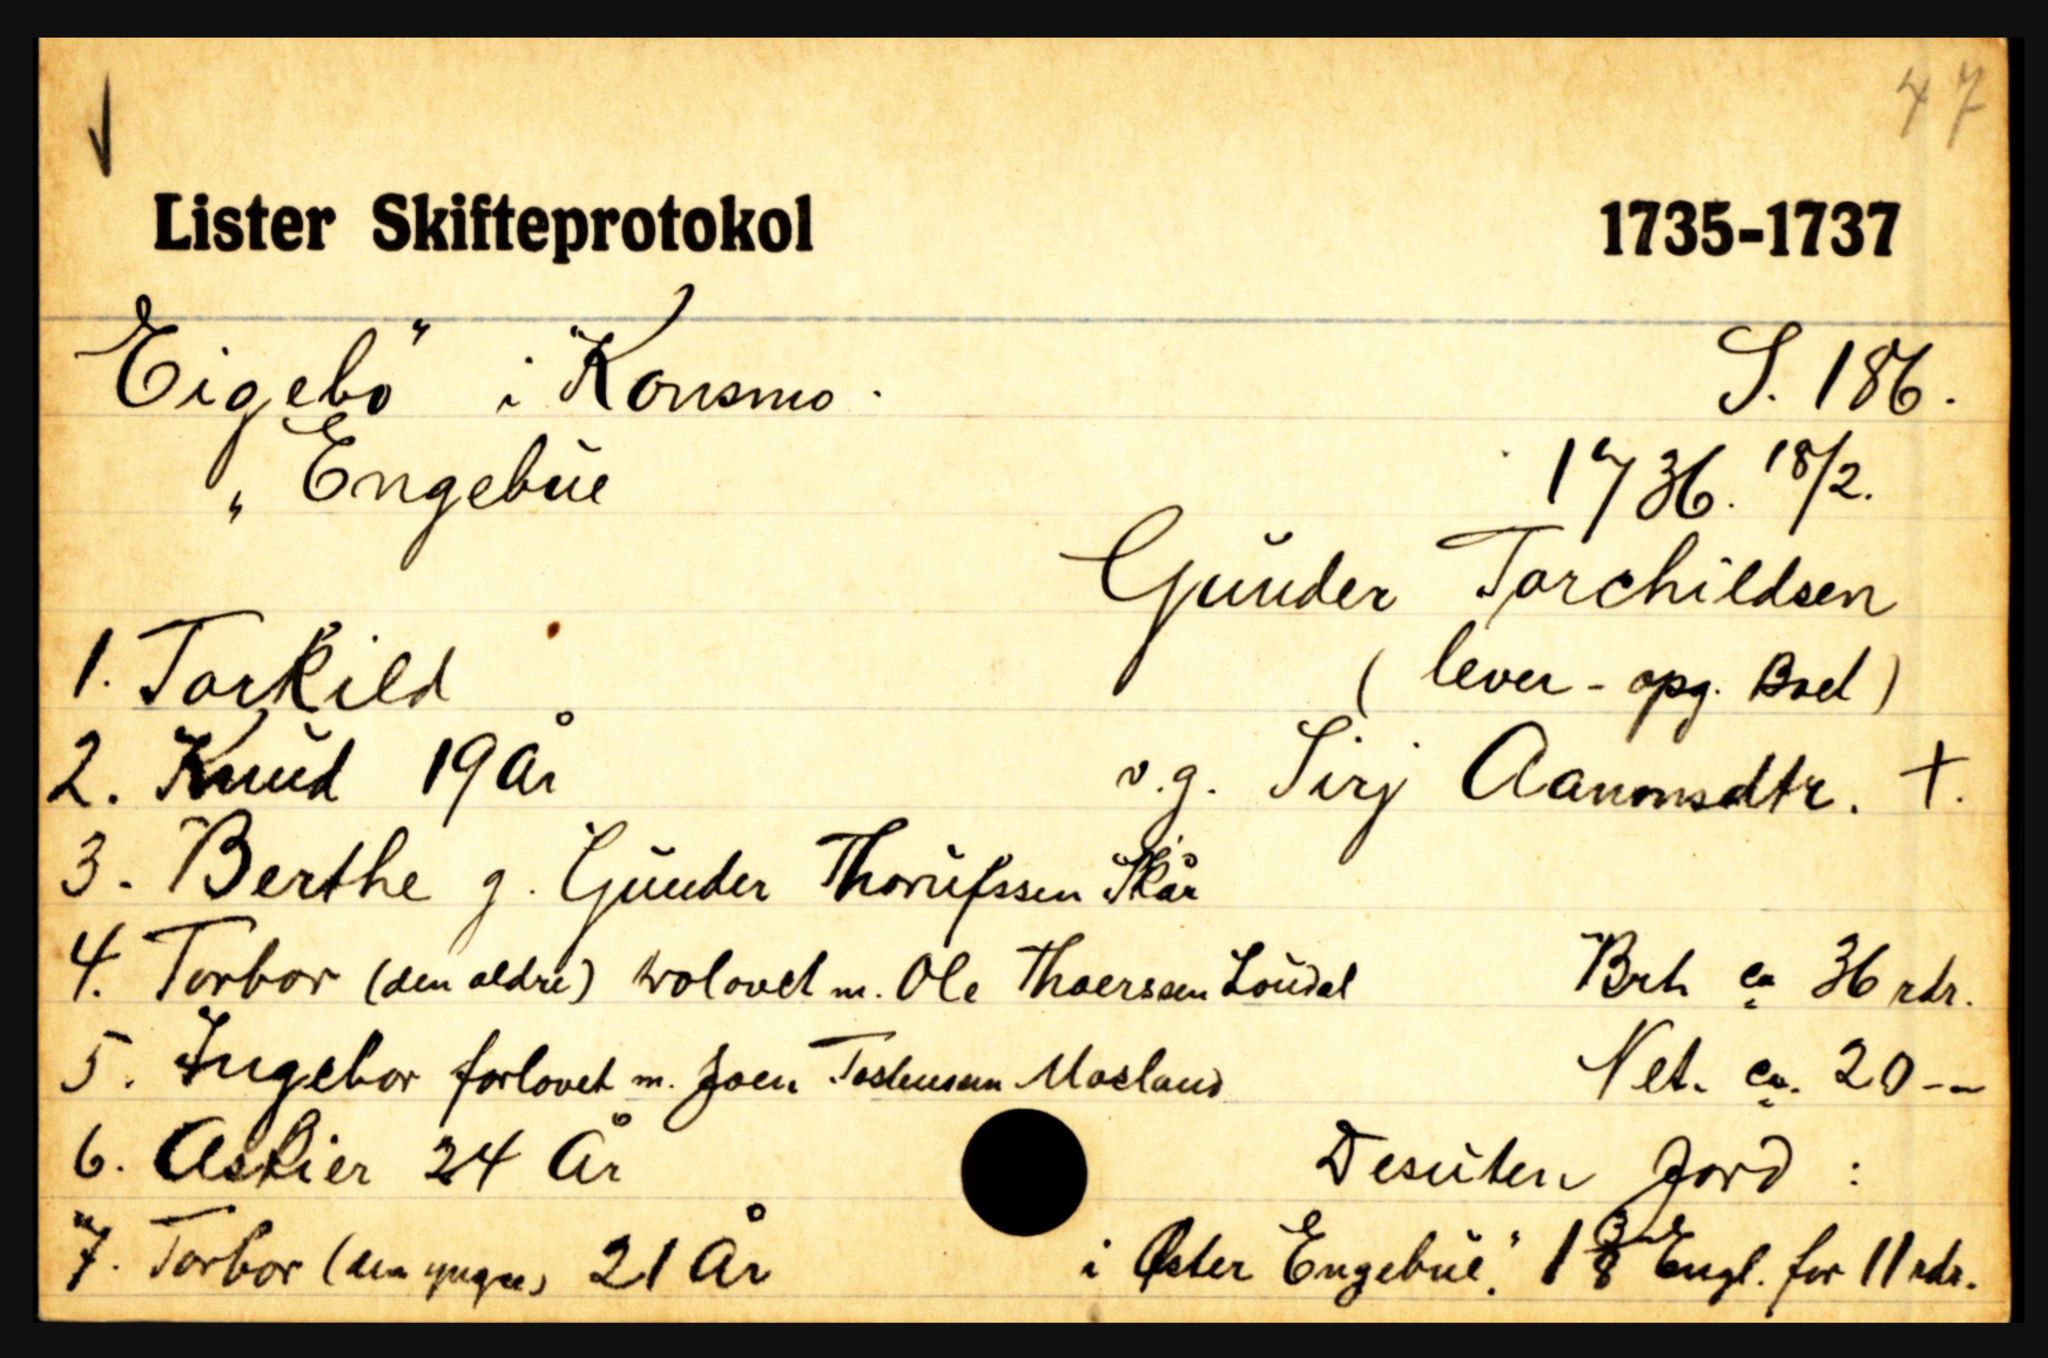 47
Lister Skifteprotokol 1735-1737
Eigebö i Konsmo. S. 186.
„ Engebüe" 1736. 18/2.
Gunder Torchildsen
1. Torkild (lever - opg. Boet)
2. Knud 19 År v.g. Sirj Aanonsdtr. +.
3. Berthe g. Gunder Thorüfssen Skår
4. Torbor (den eldre) trolovet m. Ole Thoerssen Loüdal Brt. ca 36 rdr.
5. Ingebor forlovet m. Joen Mosland Net. ca. 20 --
6. Askier 24 År Desuten Jord :
7. Torbor (den yngre) 21 År i Øster Engebüe." 1 3/8 Engl. for 11 rdr.